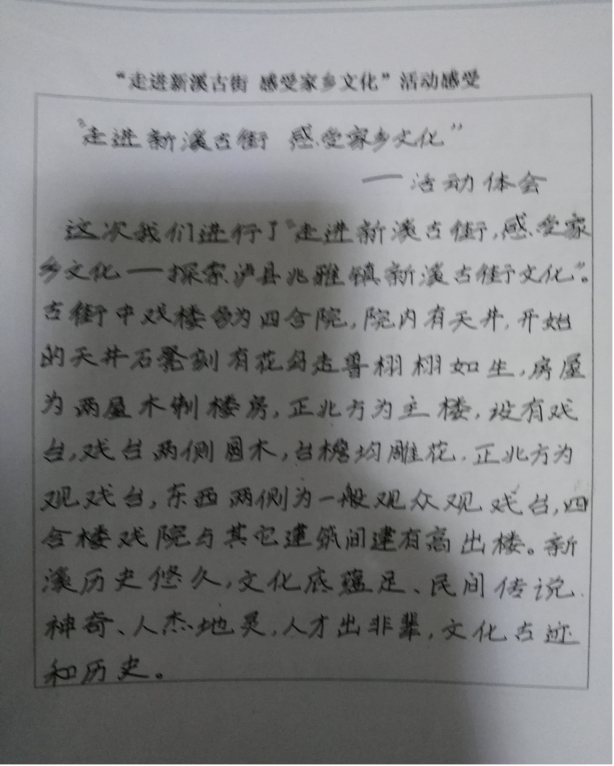 “走进新溪古街 感受家乡文化”活动感受
“走进新溪古街 感受家乡文化”
——活动体会
这次我们进行了“走进新溪古街，感受家
乡文化——探索泸县兆雅镇新溪古街文化”。
古街中戏楼为四合院，院内有天井，开始
的天井石凳刻有花鸟走兽栩栩如生，房屋
为两层木制楼房，正北方为主楼，设有戏
台，戏台两侧圆木，台檐均雕花，正北方为
观戏台，东西两侧为一般观众观戏台，四
合楼戏院与其它建筑间建有高出楼。新
溪历史悠久，文化底蕴足、民间传说
神奇、人杰地灵，人才出非辈，文化古迹
和历史。